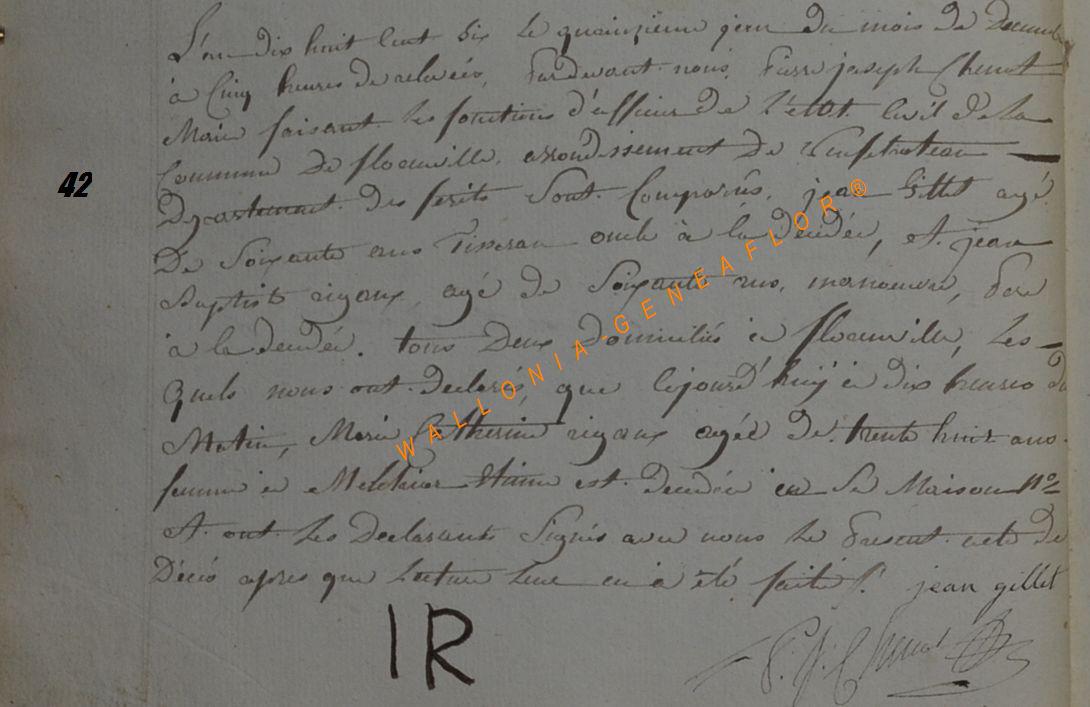 L'an dix huit cent six le quainzieme jour du mois de Decembre
à Cinq heures de relevées, Pardevant nous, Pierre joseph Chenot
Maire faisant les fonctions d'officier de l'etat Civil de la
Commune de florenville, arrondissement de Neufchateau
Departement des forêts Sont Comparus, jean Gillet agé
De Soixante ans Tisseran oncle à la décédée, et jean
Baptist rigaux agé de Soixante ans, manoeuvre, Pere
à la décédée. tous Deux domiciliés à florenville, Les
quels nous ont declarés, que cejourd'huij à dix heures du
Matin, Marie Catherine rigaux agée de trente huit ans
femme à Melchior est decedée en Sa Maison n°
et ont les Declarants Signés avec nous le Présent acte de
Décés apres que Lecture Leur en à été faite jean gillet
IR
P. J. Chenot
42
WALLONIA-GENEAFLOR®